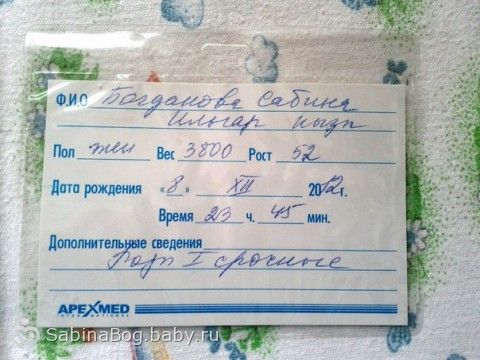 Ф.И.О Богданова Сабина
Ильгар кызы
Пол жен Вес 3800 Рост 52
Дата рождения «8» XII 2012г.
Время 23 ч. 45 мин.
Дополнительные сведения
Роды I срочные
APEXMED
INTERNATIONAL
SabinaBog.baby.ru